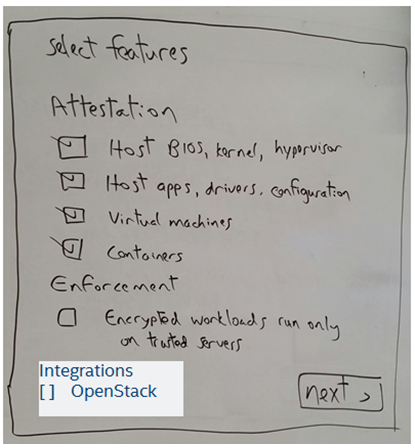 select features
Attestation
Host BIOS, kernel, hypervisor
Host apps, drivers, configuration
Virtual machines
Containers
Enforcement
Encrypted workloads run only
on trusted servers
Integrations
[ ] OpenStack
next >